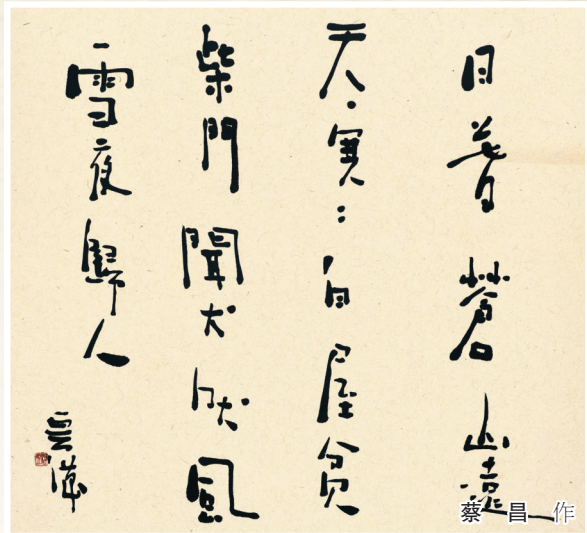 日暮蒼山遠
天寒白屋貧
柴門聞犬吠風
雪夜歸人
蔡昌作